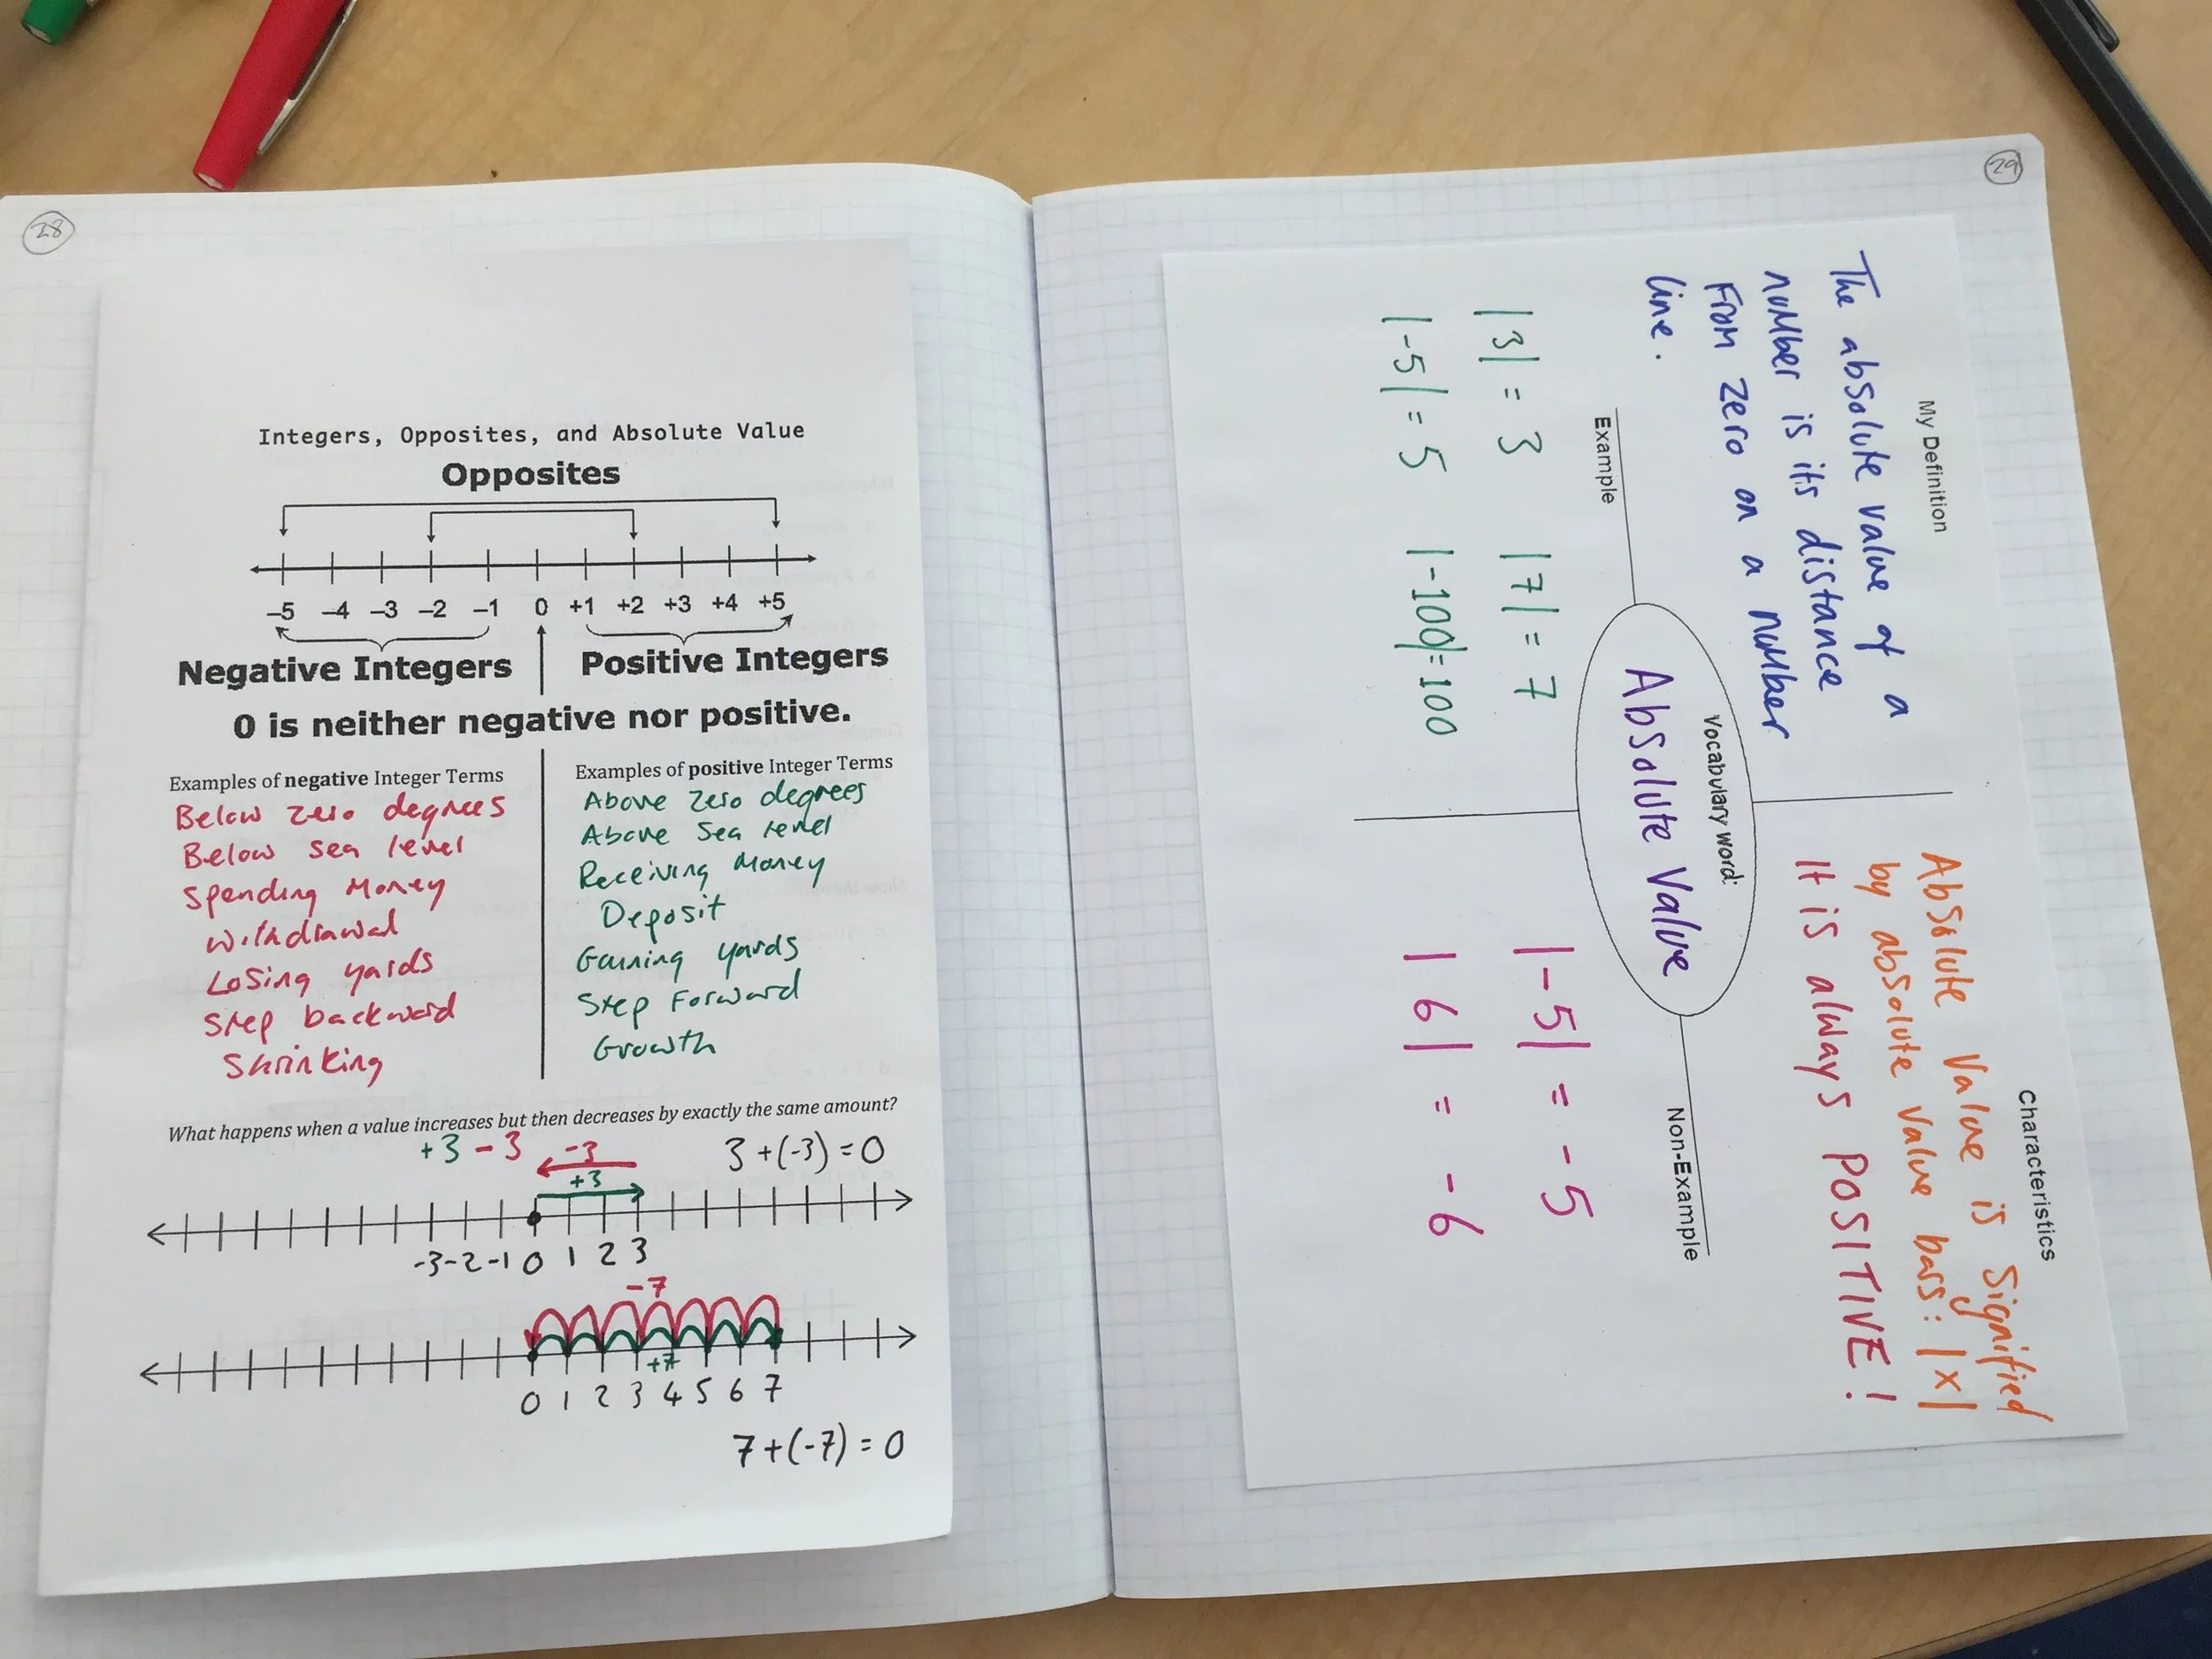 28
Integers, Opposites, and Absolute Value
Opposites
–5 –4 –3 –2 –1 0 +1 +2 +3 +4 +5
Negative Integers
Positive Integers
0 is neither negative nor positive.
Examples of negative Integer Terms
Below zero degrees
Below sea level
Spending Money
Withdrawal
Losing yards
Step backward
Shrinking
Examples of positive Integer Terms
Above zero degrees
Above sea level
Receiving Money
Deposit
Gaining yards
Step Forward
Growth
What happens when a value increases but then decreases by exactly the same amount?
+3 -3
-3
+3
3 + (-3) = 0
-3 -2 -1 0 1 2 3
-7
+7
0 1 2 3 4 5 6 7
7 + (-7) = 0
29
My Definition
The absolute value of a
number is its distance
From zero on a number
line.
Characteristics
Absolute Value is Signified
by absolute value bars: |x|
It is always POSITIVE!
Vocabulary word:
Absolute Value
Example
|3| = 3 |7| = 7
|-5| = 5 |-100| = 100
Non-Example
|-5| = -5
|6| = -6